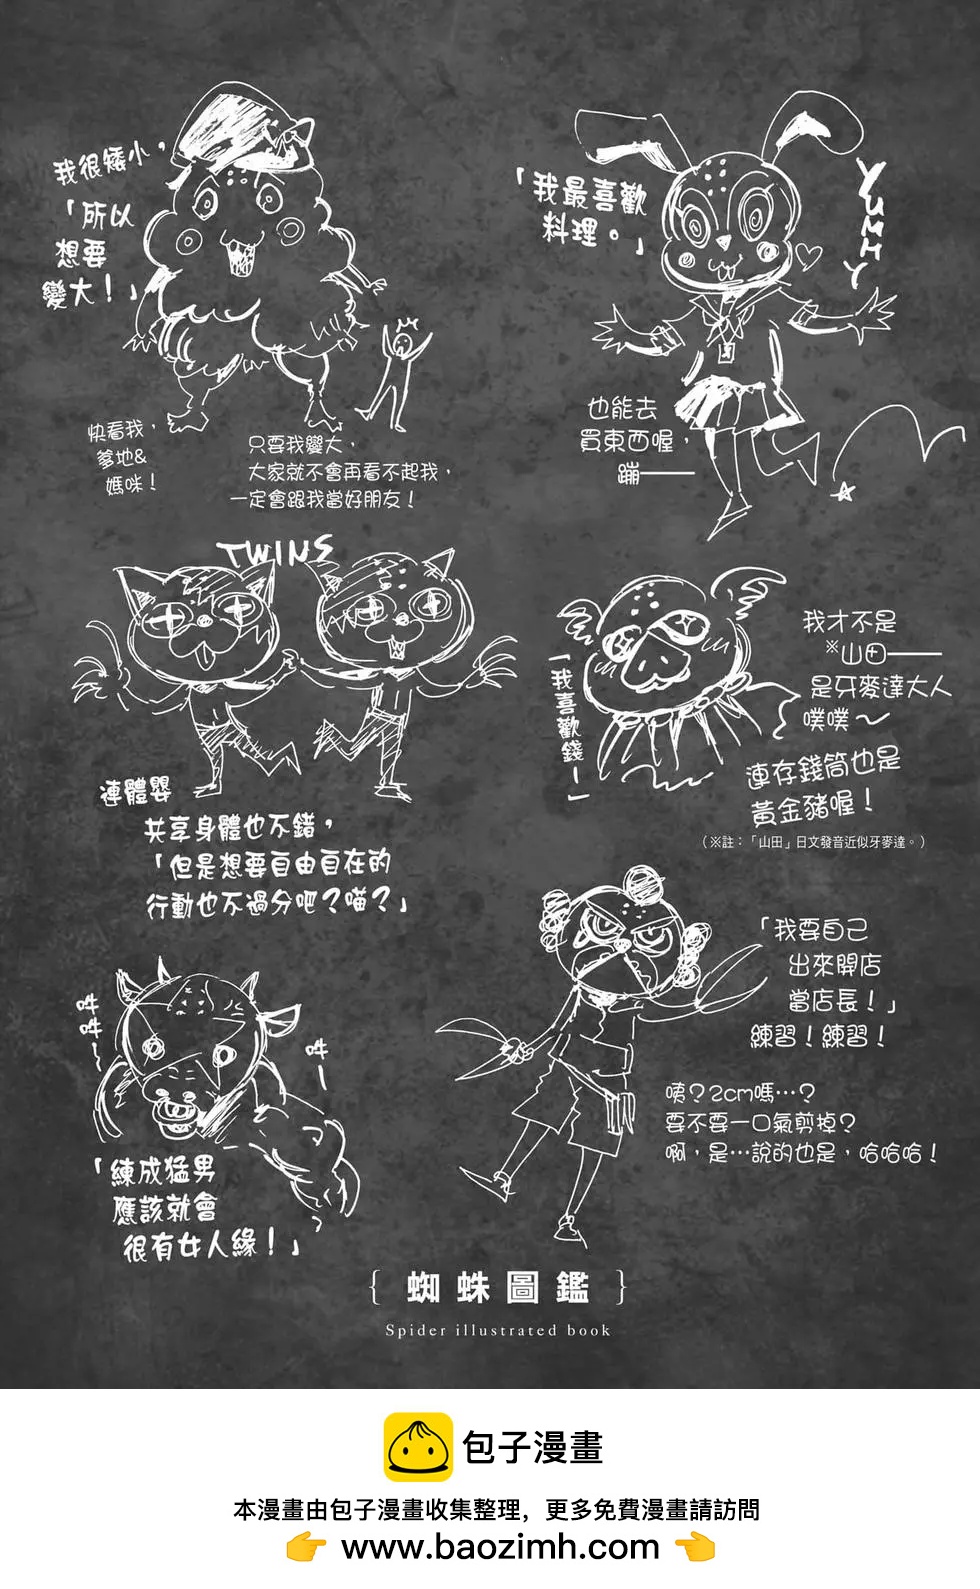 我很矮小，
「所以
想要
變大！」
快看我，
爹地&
媽咪！
只要我變大，
大家就不會再看不起我，
一定會跟我當好朋友！
「我最喜歡
料理。」
YUMMY
也能去
買東西喔，
蹦——
TWINS
連體嬰
共享身體也不錯，
「但是想要自由自在的
行動也不過分吧？喵？」
「我喜歡錢！」
我才不是
※山田——
是牙麥達大人
噗噗～
連存錢筒也是
黃金豬喔！
（※註：「山田」日文發音近似牙麥達。）
哞
哞～
哞—
「練成猛男
應該就會
很有女人緣！」
「我要自己
出來開店
當店長！」
練習！練習！
咦？2cm嗎…？
要不要一口氣剪掉？
啊，是…說的也是，哈哈哈！
{ 蜘蛛圖鑑 }
Spider illustrated book
包子漫畫
本漫畫由包子漫畫收集整理，更多免費漫畫請訪問
👉 www.baozimh.com 👈